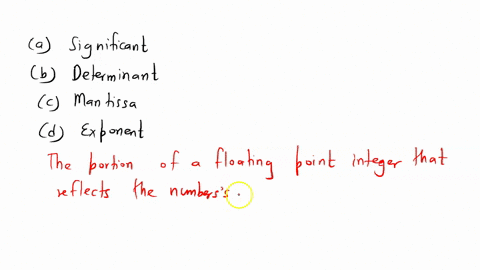 (a) Significant
(b) Determinant
(c) Mantissa
(d) Exponent
The portion of a floating point integer that
reflects the numbers's .